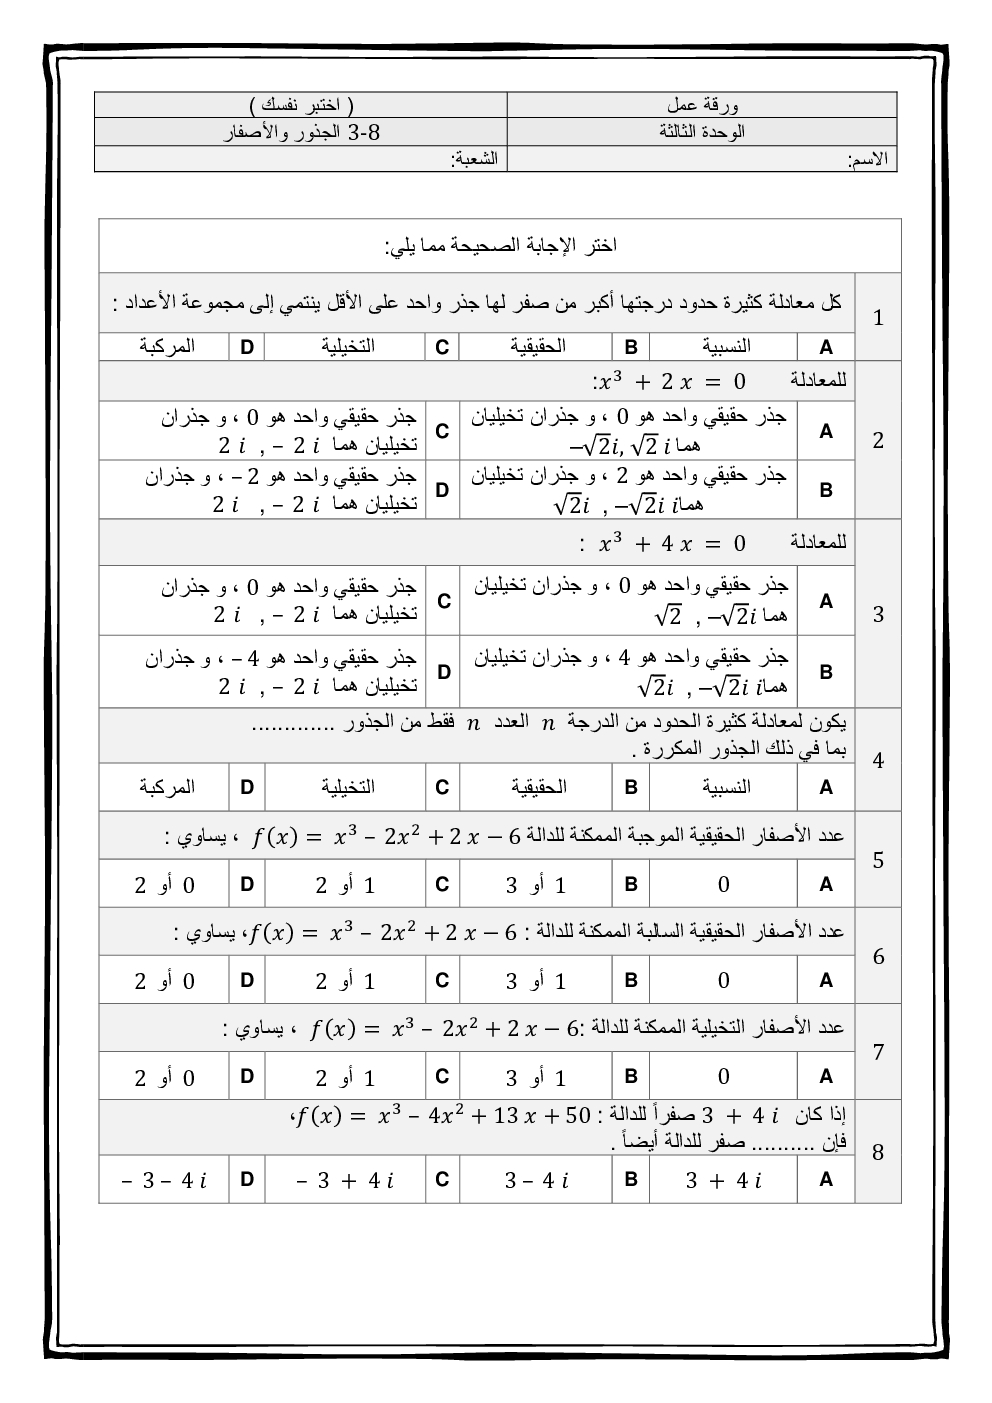 ورقة عمل
( اختبر نفسك )
الوحدة الثالثة
3-8 الجذور والأصفار
الاسم:
الشعبة:
اختر الإجابة الصحيحة مما يلي:
1
كل معادلة كثيرة حدود درجتها أكبر من صفر لها جذر واحد على الأقل ينتمي إلى مجموعة الأعداد :
A النسبية B الحقيقية C التخيلية D المركبة
2
للمعادلة x³ + 2 x = 0:
A
جذر حقيقي واحد هو 0 ، و جذران تخيليان
هما −√2i, √2 i
C
جذر حقيقي واحد هو 0 ، و جذران
تخيليان هما 2 i , – 2 i
B
جذر حقيقي واحد هو 2 ، و جذران تخيليان
هما √2i , −√2i i
D
جذر حقيقي واحد هو 2 – ، و جذران
تخيليان هما 2 i , – 2 i
3
للمعادلة x³ + 4 x = 0 :
A
جذر حقيقي واحد هو 0 ، و جذران تخيليان
هما √2 , −√2i
C
جذر حقيقي واحد هو 0 ، و جذران
تخيليان هما 2 i , – 2 i
B
جذر حقيقي واحد هو 4 ، و جذران تخيليان
هما √2i , −√2i i
D
جذر حقيقي واحد هو 4 – ، و جذران
تخيليان هما 2 i , – 2 i
4
يكون لمعادلة كثيرة الحدود من الدرجة n العدد n فقط من الجذور .............
بما في ذلك الجذور المكررة .
A النسبية B الحقيقية C التخيلية D المركبة
5
عدد الأصفار الحقيقية الموجبة الممكنة للدالة f(x) = x³ – 2x² + 2 x − 6 ، يساوي :
A 0 B 1 أو 3 C 1 أو 2 D 0 أو 2
6
عدد الأصفار الحقيقية السالبة الممكنة للدالة : f(x) = x³ – 2x² + 2 x − 6، يساوي :
A 0 B 1 أو 3 C 1 أو 2 D 0 أو 2
7
عدد الأصفار التخيلية الممكنة للدالة :f(x) = x³ – 2x² + 2 x − 6 ، يساوي :
A 0 B 1 أو 3 C 1 أو 2 D 0 أو 2
8
إذا كان 3 + 4 i صفراً للدالة : f(x) = x³ – 4x² + 13 x + 50،
فإن .......... صفر للدالة أيضاً .
A 3 + 4 i B 3 – 4 i C – 3 + 4 i D – 3 – 4 i